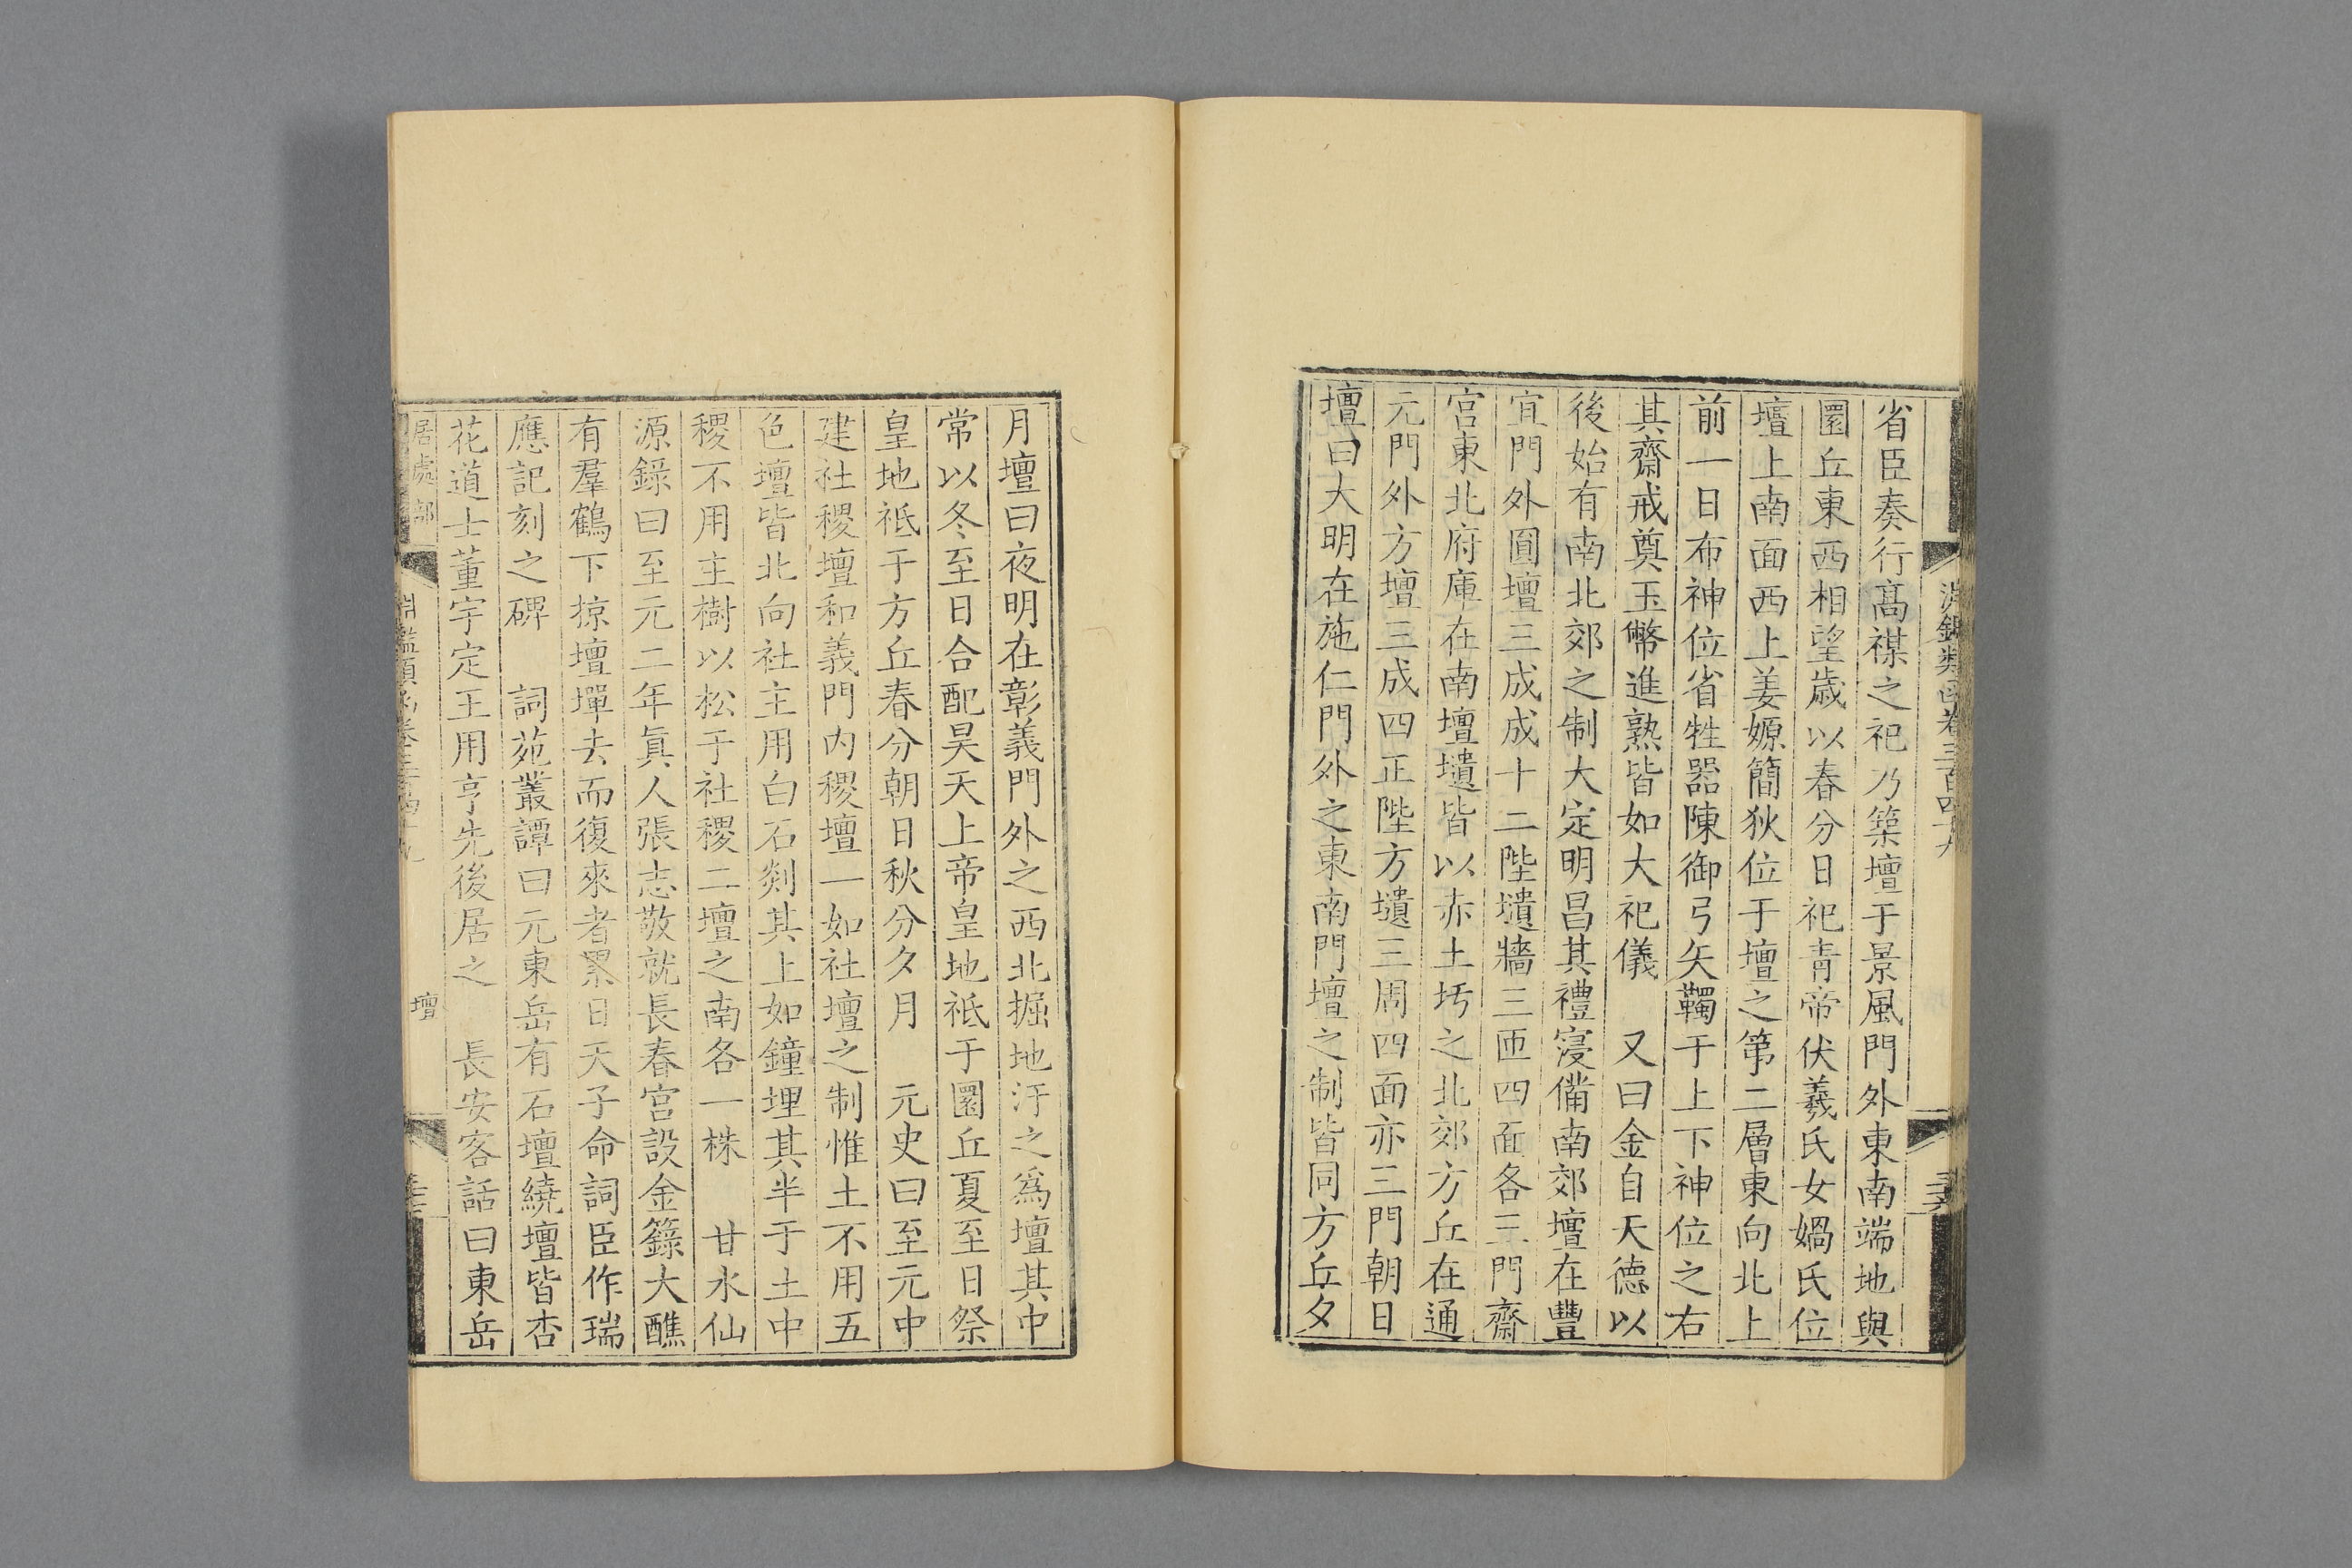 淵鑑類函卷三百四十九
省臣奏行高禖之祀乃築壇于景風門外東南端地與
圜丘東西相望歲以春分日祀青帝伏羲氏女媧氏位
壇上南面西上姜嫄簡狄位于壇之第二層東向北上
前一日布神位省牲器陳御弓矢韣于上下神位之右
其齋戒奠玉幣進熟皆如大祀儀　又曰金自天德以
後始有南北郊之制大定明昌其禮寖備南郊壇在豐
宜門外圓壇三成成十二陛壝牆三匝四面各三門齋
宮東北府庫在南壇壝皆以赤土圬之北郊方丘在通
元門外方壇三成四正陛方壝三周四面亦三門朝日
壇曰大明在施仁門外之東南門壇之制皆同方丘夕
月壇曰夜明在彰義門外之西北掘地汙之爲壇其中
常以冬至日合配昊天上帝皇地祇于圜丘夏至日祭
皇地祇于方丘春分朝日秋分夕月　元史曰至元中
建社稷壇和義門内稷壇一如社壇之制惟土不用五
色壇皆北向社主用白石剡其上如鐘埋其半于土中
稷不用主樹以松于社稷二壇之南各一株　甘水仙
源錄曰至元二年眞人張志敬就長春宮設金籙大醮
有羣鶴下掠壇墠去而復來者累日天子命詞臣作瑞
應記刻之碑　詞苑叢譚曰元東岳有石壇繞壇皆杏
花道士董宇定王用亨先後居之　長安客話曰東岳
居處部　淵鑑類函卷三百四十九　壇